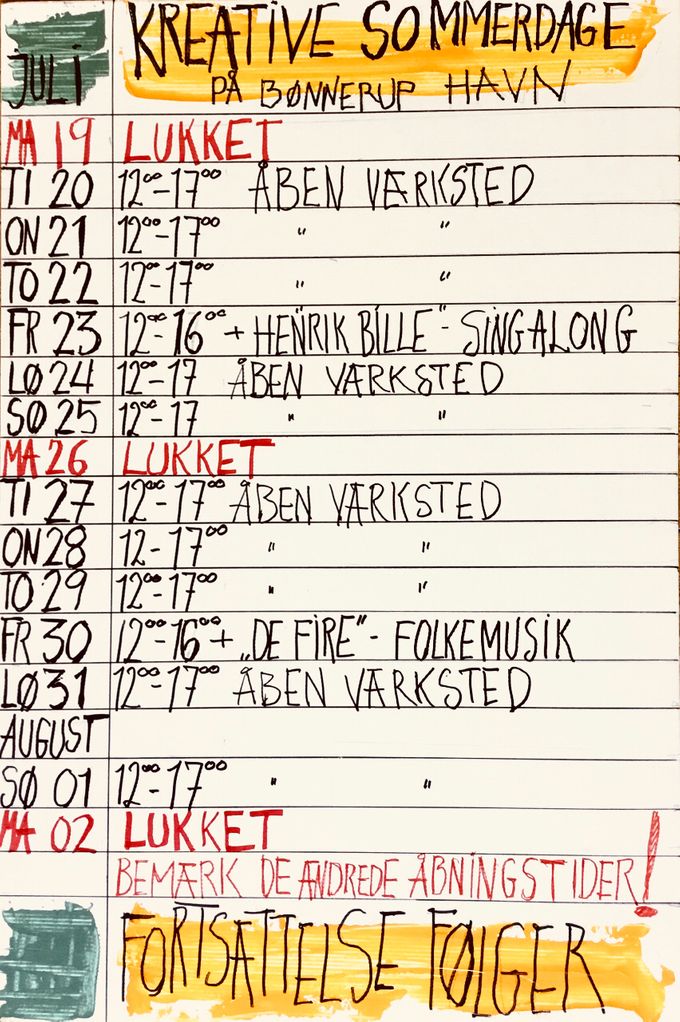 JULI KREATIVE SOMMERDAGE
PÅ BØNNERUP HAVN
MA 19 LUKKET
TI 20 12⁰⁰-17⁰⁰ ÅBEN VÆRKSTED
ON 21 12⁰⁰-17⁰⁰ " "
TO 22 12⁰⁰-17⁰⁰ " "
FR 23 12⁰⁰-16⁰⁰ + "HENRIK BILLE" - SINGALONG
LØ 24 12⁰⁰-17 ÅBEN VÆRKSTED
SØ 25 12⁰⁰-17 " "
MA 26 LUKKET
TI 27 12⁰⁰-17⁰⁰ ÅBEN VÆRKSTED
ON 28 12-17⁰⁰ " "
TO 29 12⁰⁰-17⁰⁰ " "
FR 30 12⁰⁰-16⁰⁰ + „DE FIRE" - FOLKEMUSIK
LØ 31 12⁰⁰-17⁰⁰ ÅBEN VÆRKSTED
AUGUST
SØ 01 12⁰⁰-17⁰⁰ " "
MA 02 LUKKET
BEMÆRK DE ÆNDREDE ÅBNINGSTIDER!
FORTSÆTTELSE FØLGER